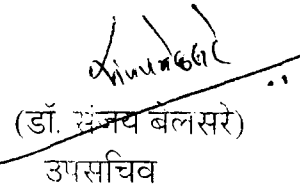 (डॉ. संजय बेलसरे)
उपसचिव